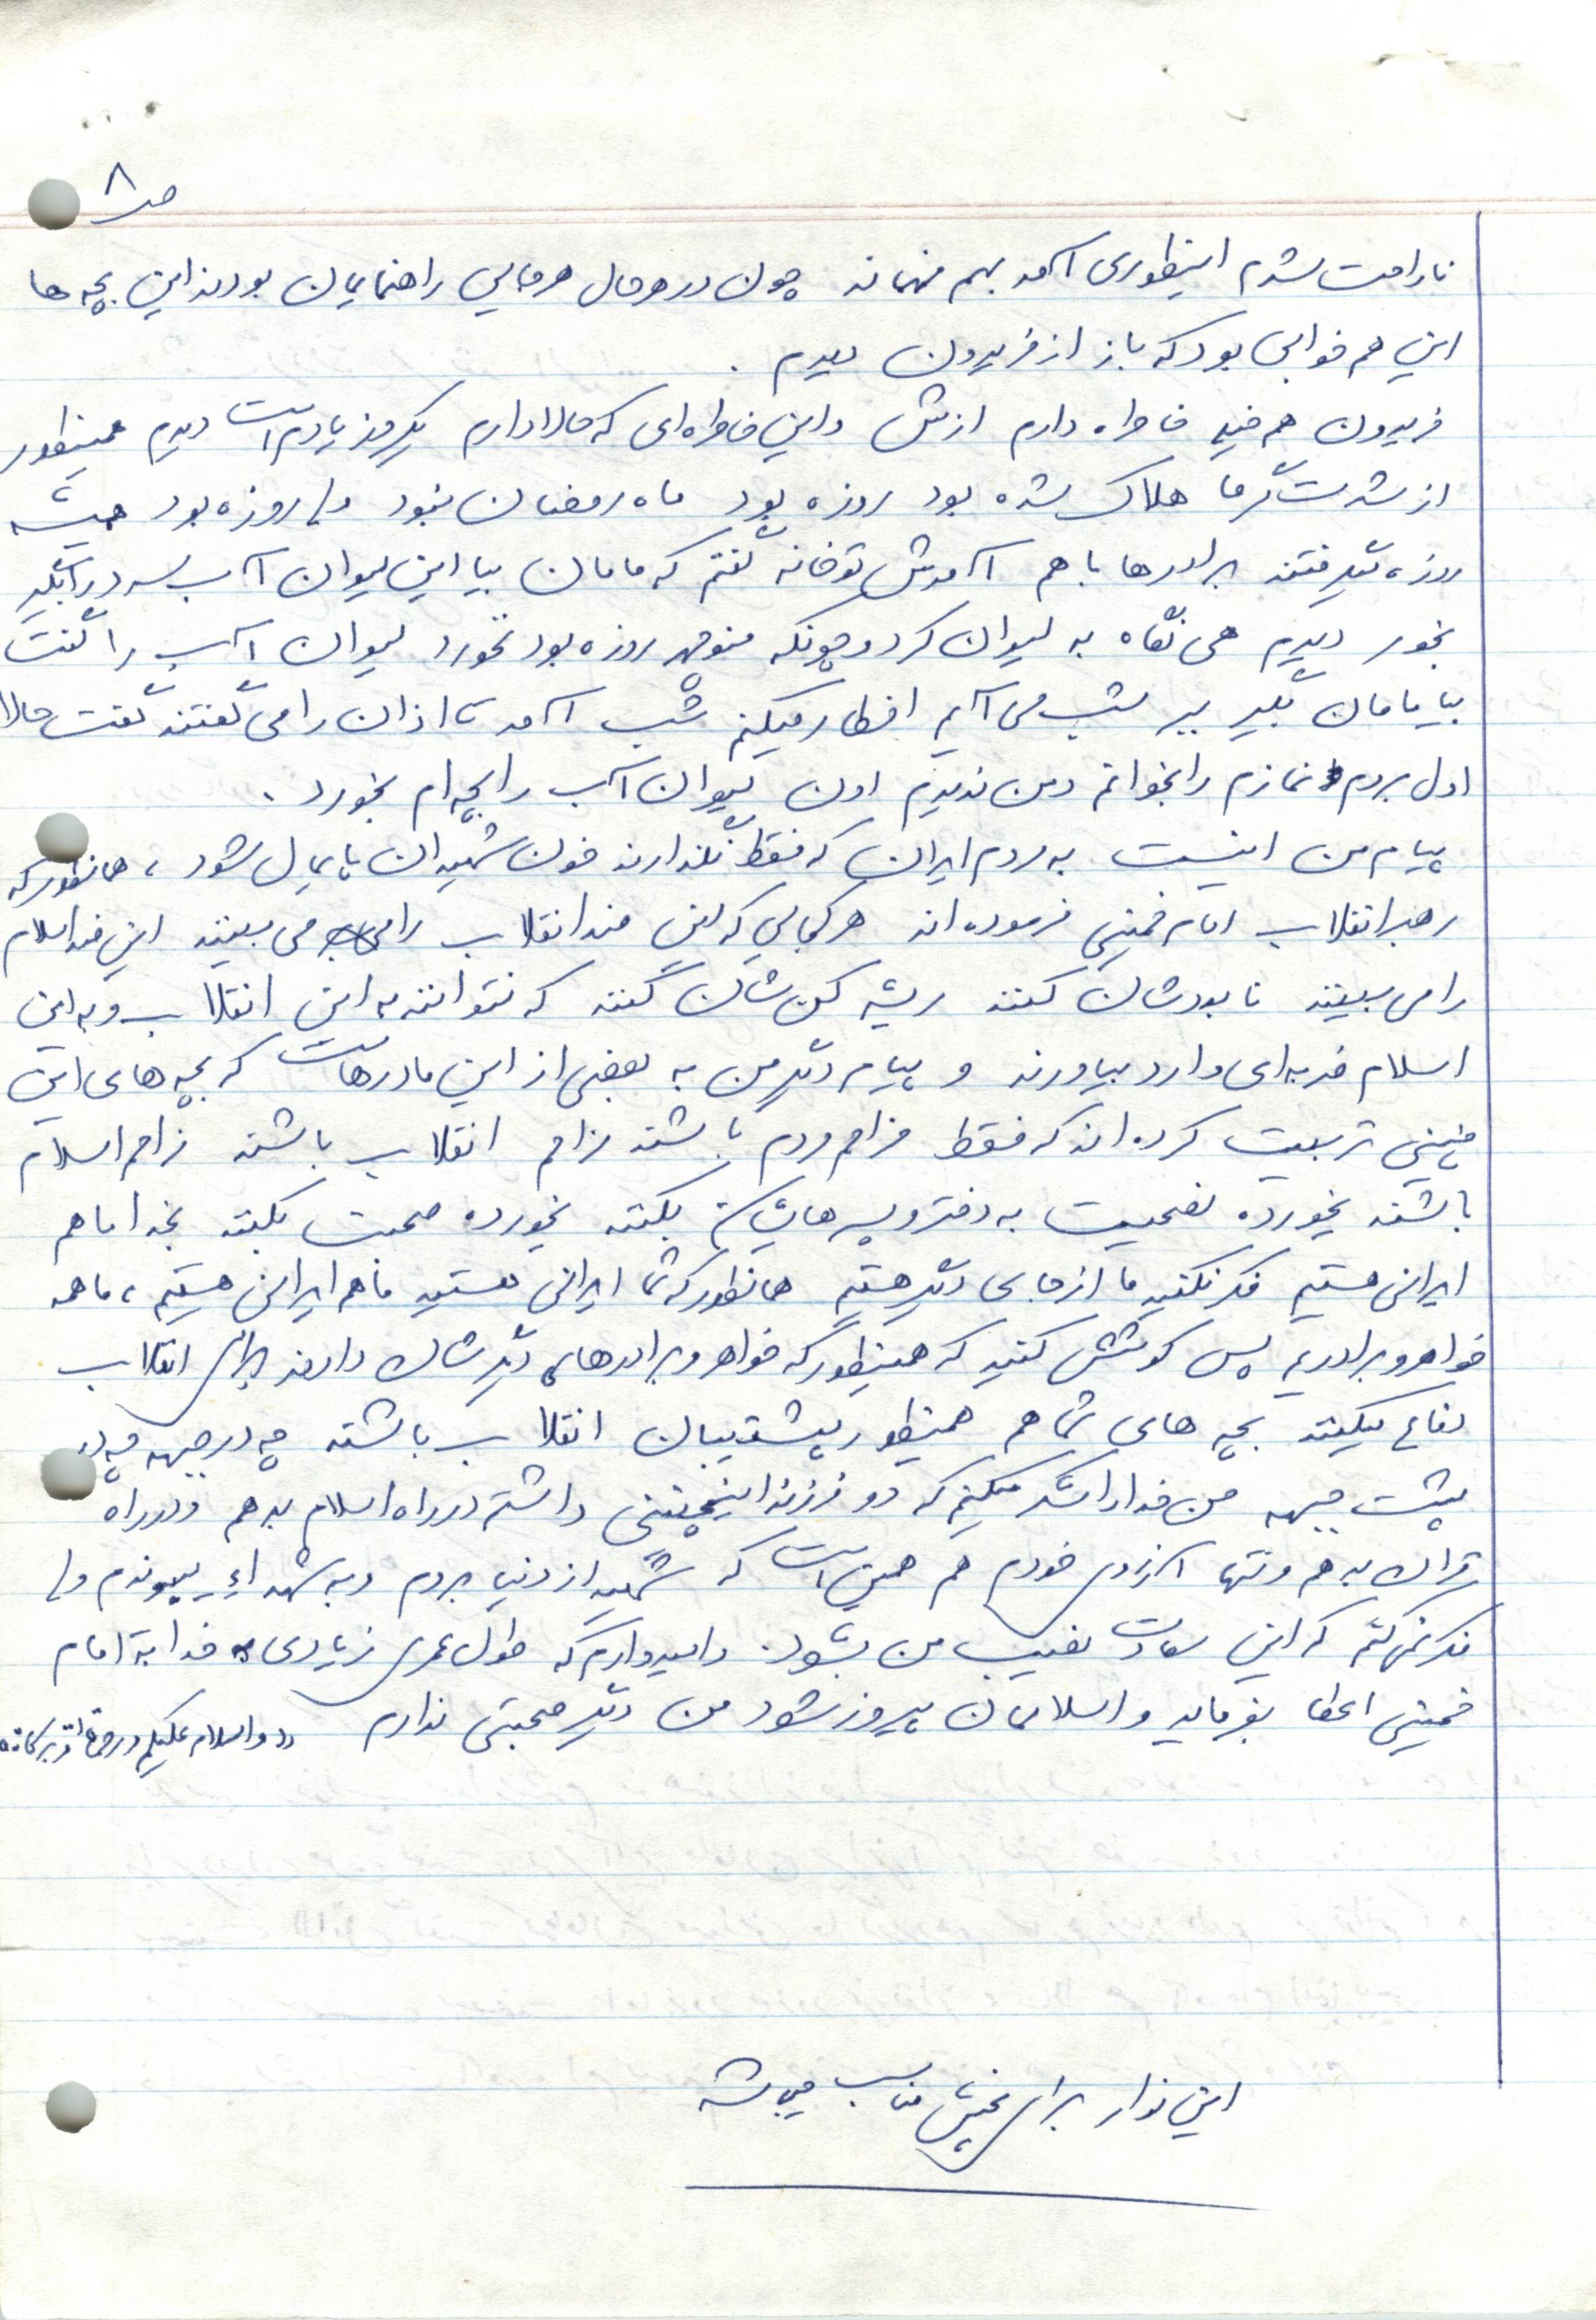 ص ۸
ناراحت شدم اینطوری آمد بهم فهماند چون در هر حال هر جایی راهنمایمان بودند این بچه ها
این هم خوابی بود که باز از فریدون دیدم .
فریدون هم خیلی خاطره دارم ازش و این خاطره ای که حالا دارم یکروز یادم است دیدم همینطور
از شدت گرما هلاک شده بود روزه بود ماه رمضان نبود ولی روزه بود همیشه
روزه میگرفتند برادرها با هم آمدش تو خانه گفتم که مامان بیا این لیوان آب سرد را بگیر
بخور دیدم هی نگاه به لیوان کرد و چونکه روزه بود نخورد لیوان آب را گفت
بیا مامان بگیر ببر شب می آیم افطار میکنم شب آمد تا اذان را می گفتند گفت حالا
اول بروم نمازم را بخوانم و من ندیدم اون لیوان آب را بچه ام بخورد .
پیام من اینست به مردم ایران که فقط نگذارند خون شهیدان پایمال شود ، همانطور که
رهبر انقلاب امام خمینی فرموده اند هر کجایی که این ضد انقلاب را می بینند این ضد اسلام
را می بینند نابودشان کنند ریشه کن شان کنند که نتوانند به این انقلاب و به این
اسلام ضربه ای وارد بیاورند و پیام دیگر من به بعضی از این مادرهاست که بچه های این
چنینی تربیت کرده اند که فقط مزاحم مردم باشند مزاحم انقلاب باشند مزاحم اسلام
باشند یخورده نصیحت به دختر و پسرهایشان بکنند یخورده صحبت بکنند بخدا ما هم
ایرانی هستیم فکر نکنید ما از جای دیگر هستیم همانطور که شما ایرانی هستید ما هم ایرانی هستیم ، ما همه
خواهر و برادریم پس کوشش کنید که همینطور که خواهر و برادرهای دیگرشان دارند برای انقلاب
دفاع میکنند بچه های شما هم همینطور پشتیبان انقلاب باشند چه در جبهه چه در
پشت جبهه من خدا را شکر میکنم که دو فرزند اینچنینی داشتم در راه اسلام بدهم و در راه
قرآن بدهم و تنها آرزوی خودم هم همین است که شهید از دنیا بروم و به شهداء بپیوندم ولی
فکر نمیکنم که این سعادت نصیب من بشود. و امیدوارم که طول عمری زیادی خدا به امام
خمینی اعطا بفرماید و اسلاممان پیروز شود من دیگر صحبتی ندارم والسلام علیکم و رحمة الله و برکاته
این نوار برای پخش مناسب میباشد